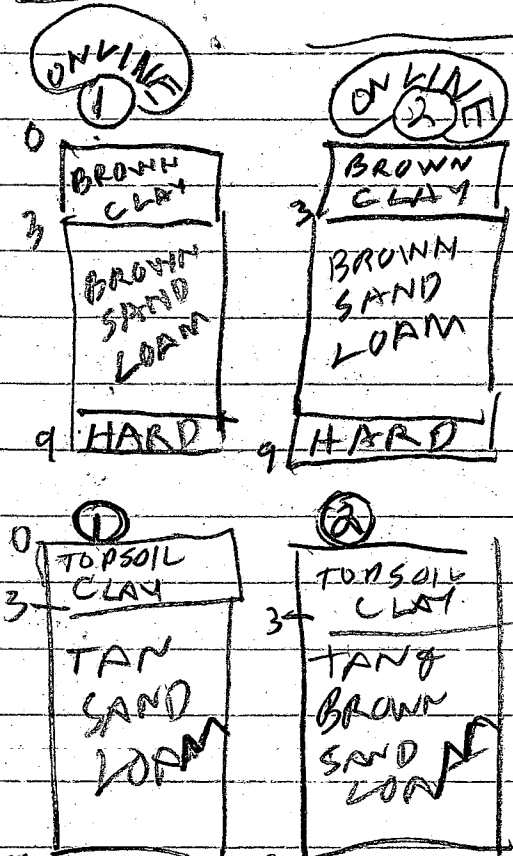 ONLINE
1
0
BROWN
CLAY
3
BROWN
SAND
LOAM
HARD
9
ONLINE
2
BROWN
CLAY
3
BROWN
SAND
LOAM
HARD
9
1
0
TOPSOIL
CLAY
3
TAN
SAND
LOAM
2
TOPSOIL
CLAY
3
TAN &
BROWN
SAND
LOAM